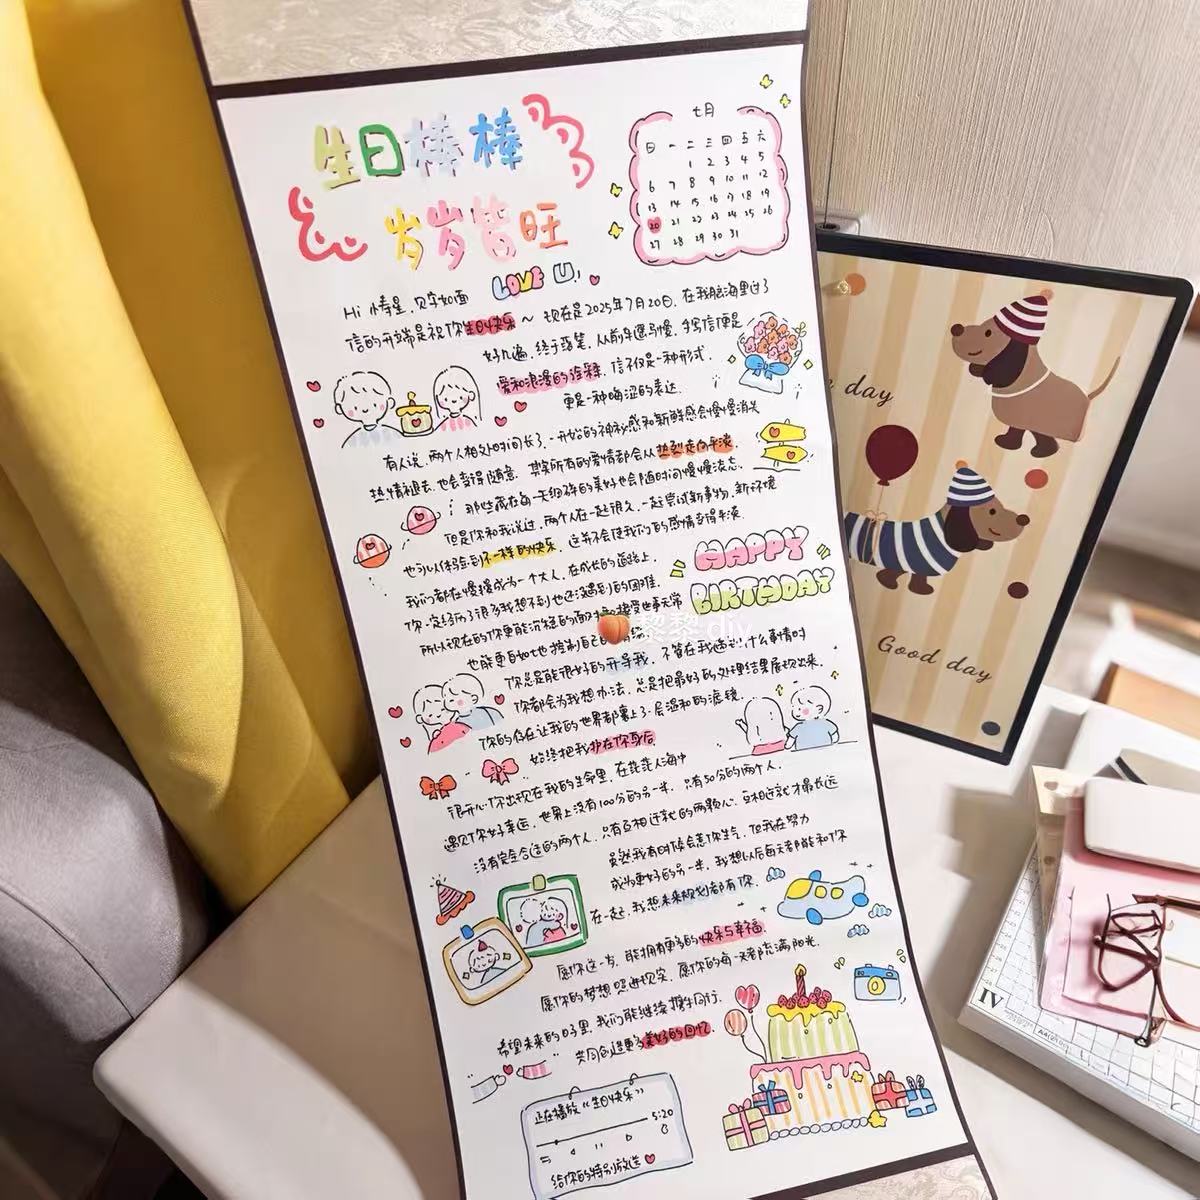 生日棒棒
岁岁皆旺
七月
日 一 二 三 四 五 六
1 2 3 4 5
6 7 8 9 10 11 12
13 14 15 16 17 18 19
20 21 22 23 24 25 26
27 28 29 30 31
LOVE U!
Hi 见字如面
信的开端是祝你生日快乐～ 现在是2025年7月20日，在我脑海里过了
好几遍，终于落笔，从前车遥马慢，手写信便是
爱和浪漫的诠释，信不仅是一种形式，
更是一种晦涩的表达
有人说，两个人相处时间长了，开始的神秘感和新鲜感会慢慢消失
热情褪去，也会变得随意，其实所有的爱情都会从热烈走向平淡，
那些藏在每一天细碎的美好也会随时间慢慢流志
但是你和我说过，两个人在一起很久，一起尝试新事物，新环境
也可以体验到不一样的快乐，这并不会使我们的感情变得平淡
我们都在慢慢成为一个大人，在成长的道路上，
你一定经历了很多我想不到也还没遇到的困难，
所以现在的你更能沉稳的面对和接受世事无常
也能更自如地控制自己的情绪
HAPPY
BIRTHDAY
黎黎diy
你总是能很好的开导我，不管在我遇到什么事情时
你都会为我想办法，总是把最好的处理结果展现出来，
你的存在让我的世界都裹上了一层温和的滤镜，
始终把我护在你身后
很开心你出现在我的生命里，在茫茫人海中
遇见你好幸运，世界上没有100分的另一半，只有50分的两个人，
没有完全合适的两个人，只有互相迁就的两颗心，互相迁就才最长远
虽然我有时候会惹你生气，但我在努力
成为更好的另一半，我想以后每天都能和你
在一起，我想未来规划都有你，
愿你这一岁，能拥有更多的快乐与幸福，
愿你的梦想照进现实，愿你的每一天都充满阳光，
希望未来的日子里，我们能继续携手同行，
共同创造更多美好的回忆，
正在播放《生日快乐》
5:20
给你的特别放送
day
Good day
IV